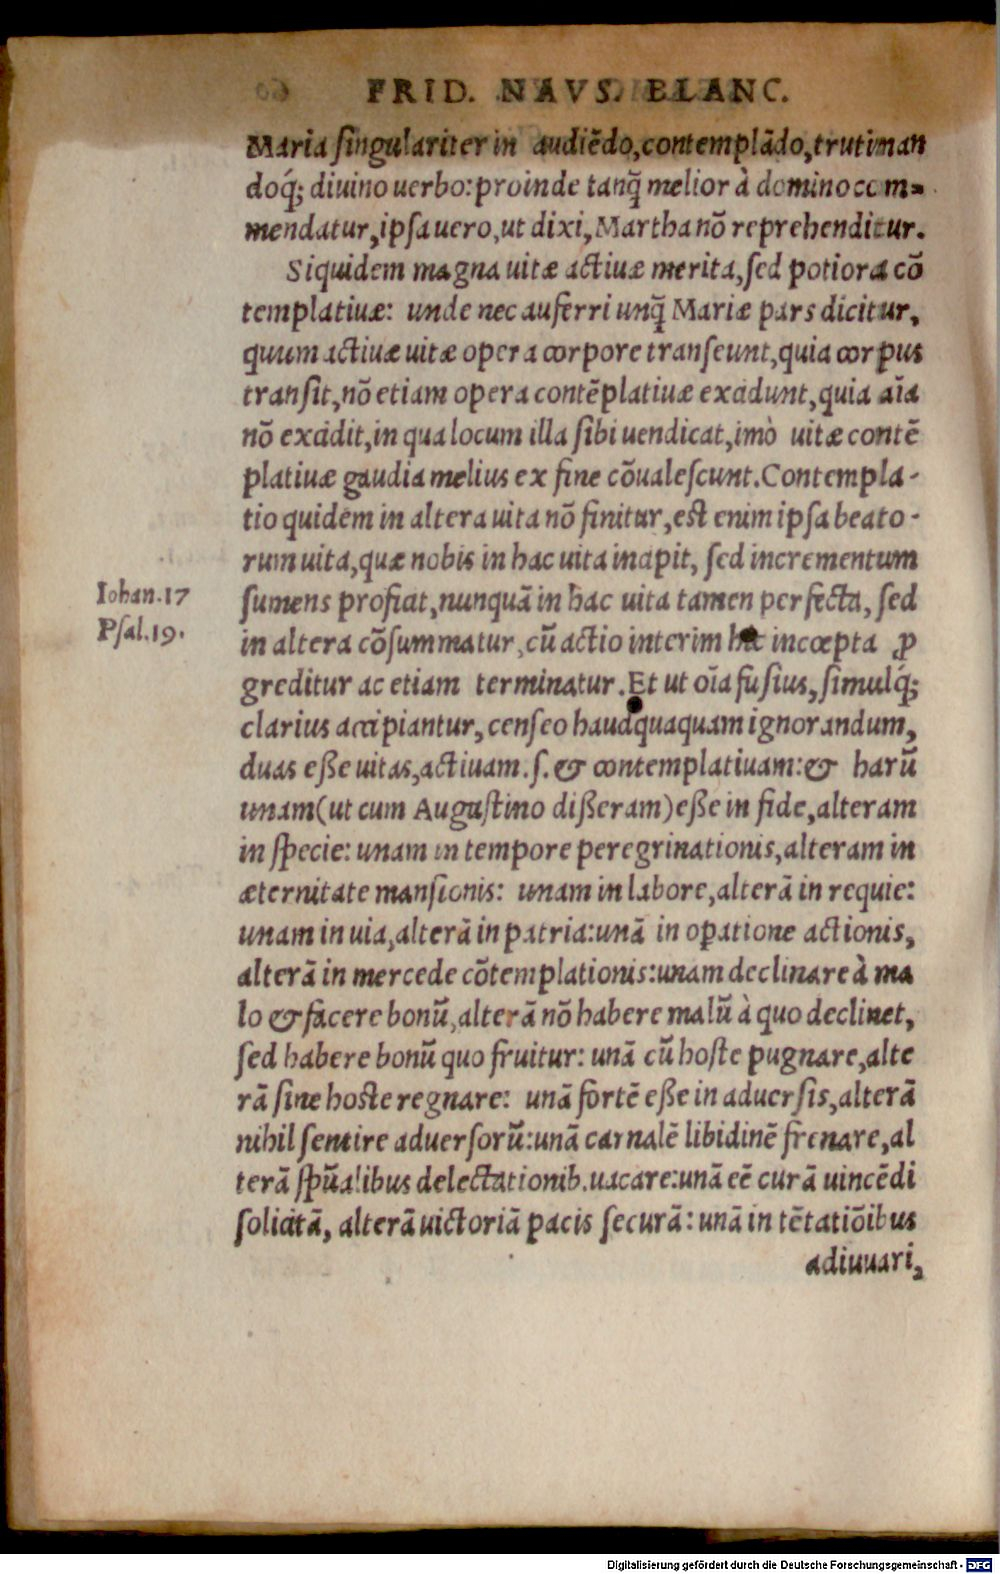 FRID. NAVS. BLANC.
Maria singulariter in audiẽdo, contemplãdo, trutinan
doq́; diuino uerbo: proinde tanq̃ melior à domino com-
mendatur, ipsa uero, ut dixi, Martha nõ reprehenditur.
Siquidem magna uitæ actiuæ merita, sed potiora cõ
templatiuæ: unde nec auferri unq̃ Mariæ pars dicitur,
quum actiuæ uitæ opera corpore transeunt, quia corpus
transit, nõ etiam opera contẽplatiuæ excidunt, quia aĩa
nõ excidit, in qua locum illa sibi uendicat, imò uitæ contẽ
platiuæ gaudia melius ex fine cõualescunt. Contempla-
tio quidem in altera uita nõ finitur, est enim ipsa beato-
rum uita, quæ nobis in hac uita incipit, sed incrementum
Iohan. 17
sumens proficit, nunquã in hac uita tamen perfecta, sed
Psal. 19.
in altera cõsummatur, cũ actio interim hic incœpta ꝓ
greditur ac etiam terminatur. Et ut oĩa fusius, simulq́;
clarius accipiantur, censeo haudquaquam ignorandum,
duas eße uitas, actiuam. s. & contemplatiuam: & harũ
unam (ut cum Augustino dißeram) eße in fide, alteram
in specie: unam in tempore peregrinationis, alteram in
æternitate mansionis: unam in labore, alterã in requie:
unam in uia, alterã in patria: unã in opatione actionis,
alterã in mercede cõtemplationis: unam declinare à ma
lo & facere bonũ, alterã nõ habere malũ à quo declinet,
sed habere bonũ quo fruitur: unã cũ hoste pugnare, alte
rã sine hoste regnare: unã fortẽ eße in aduersis, alterã
nihil sentire aduersorũ: unã carnalẽ libidinẽ frenare, al
terã spũalibus delectationib. uacare: unã eẽ curã uincẽdi
solicitã, alterã uictoriã pacis securã: unã in tẽtatiõibus
adiuuari,
Digitalisierung gefördert durch die Deutsche Forschungsgemeinschaft - DFG